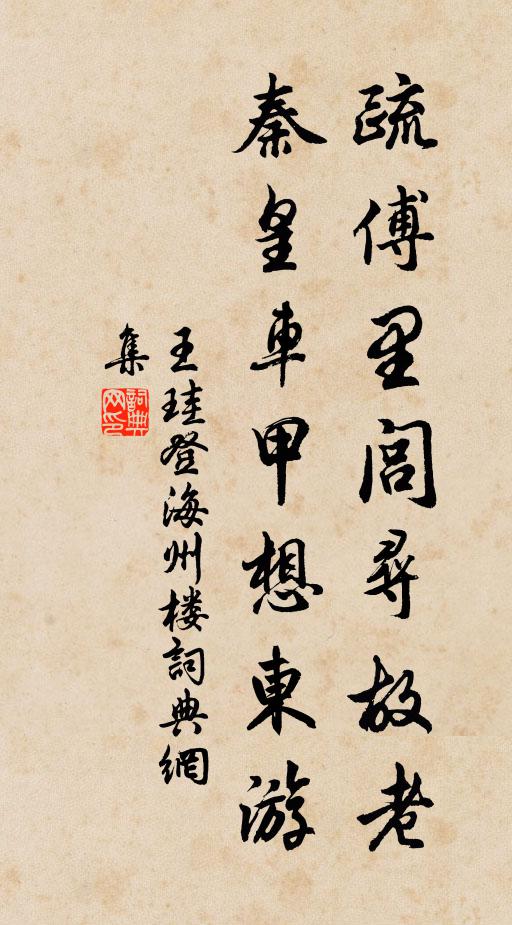 疏傅里闾尋故老
秦皇車甲想東游
王珪登海州楼詞典網
集
詞典
网印